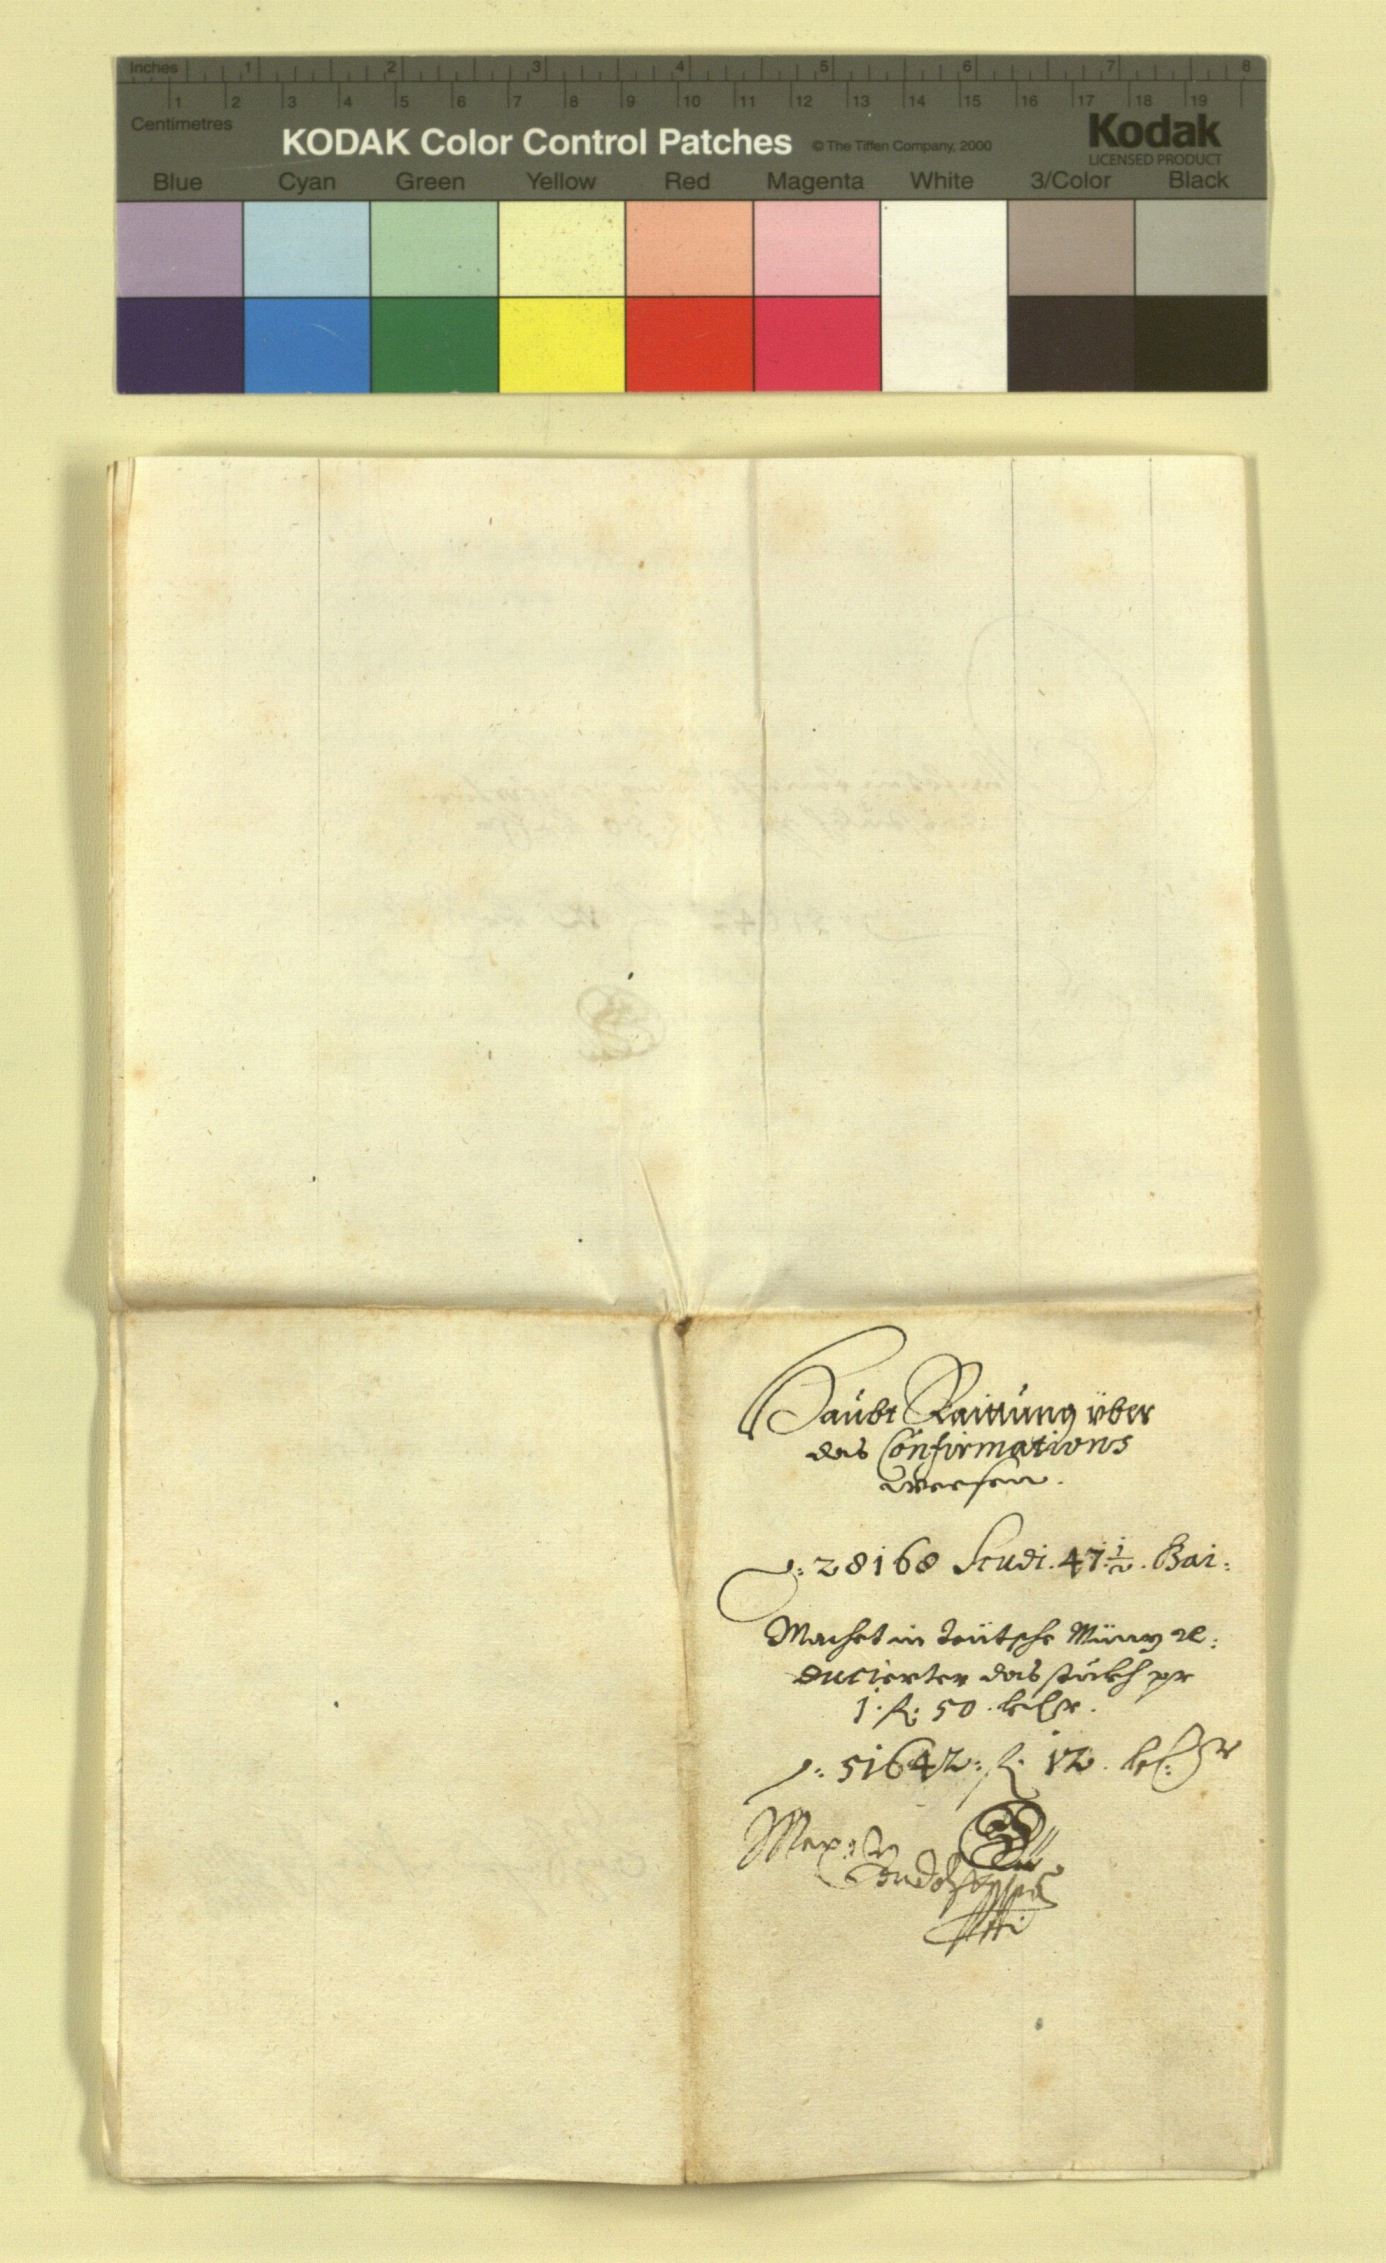 Inches 1 2 3 4 5 6 7 8
1 2 3 4 5 6 7 8 9 10 11 12 13 14 15 16 17 18 19
Centimetres
KODAK Color Control Patches © The Tiffen Company, 2000 Kodak
LICENSED PRODUCT
Blue Cyan Green Yellow Red Magenta White 3/Color Black
Haubt Raittung über
das Confirmations
weesen.
28168 Scudi. 47 1/2. Bai:
Machet in Teütsche Münz re:
ducierter das stuckh pr
1: fl: 50. kr.
51642: fl: 12. kr